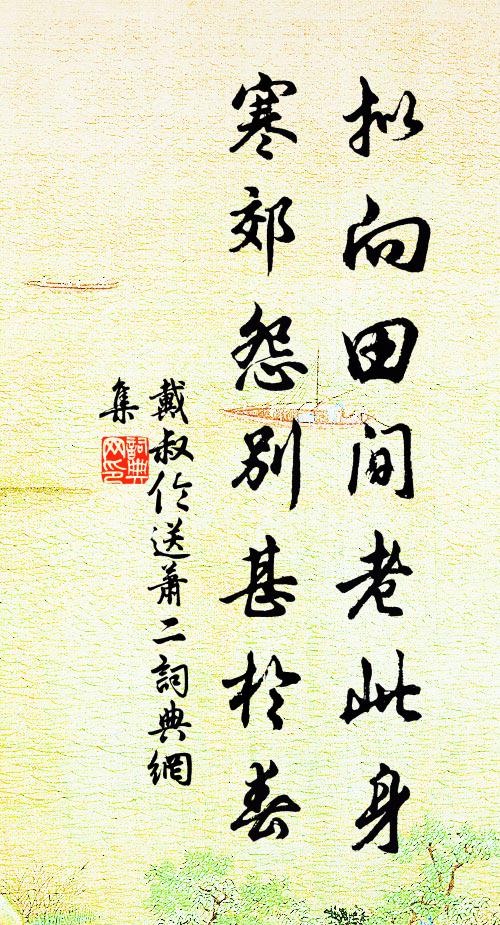 拟向田间老此身
寒郊怨别甚於春
戴叔伦送萧二詞典網
集
詞典
网印